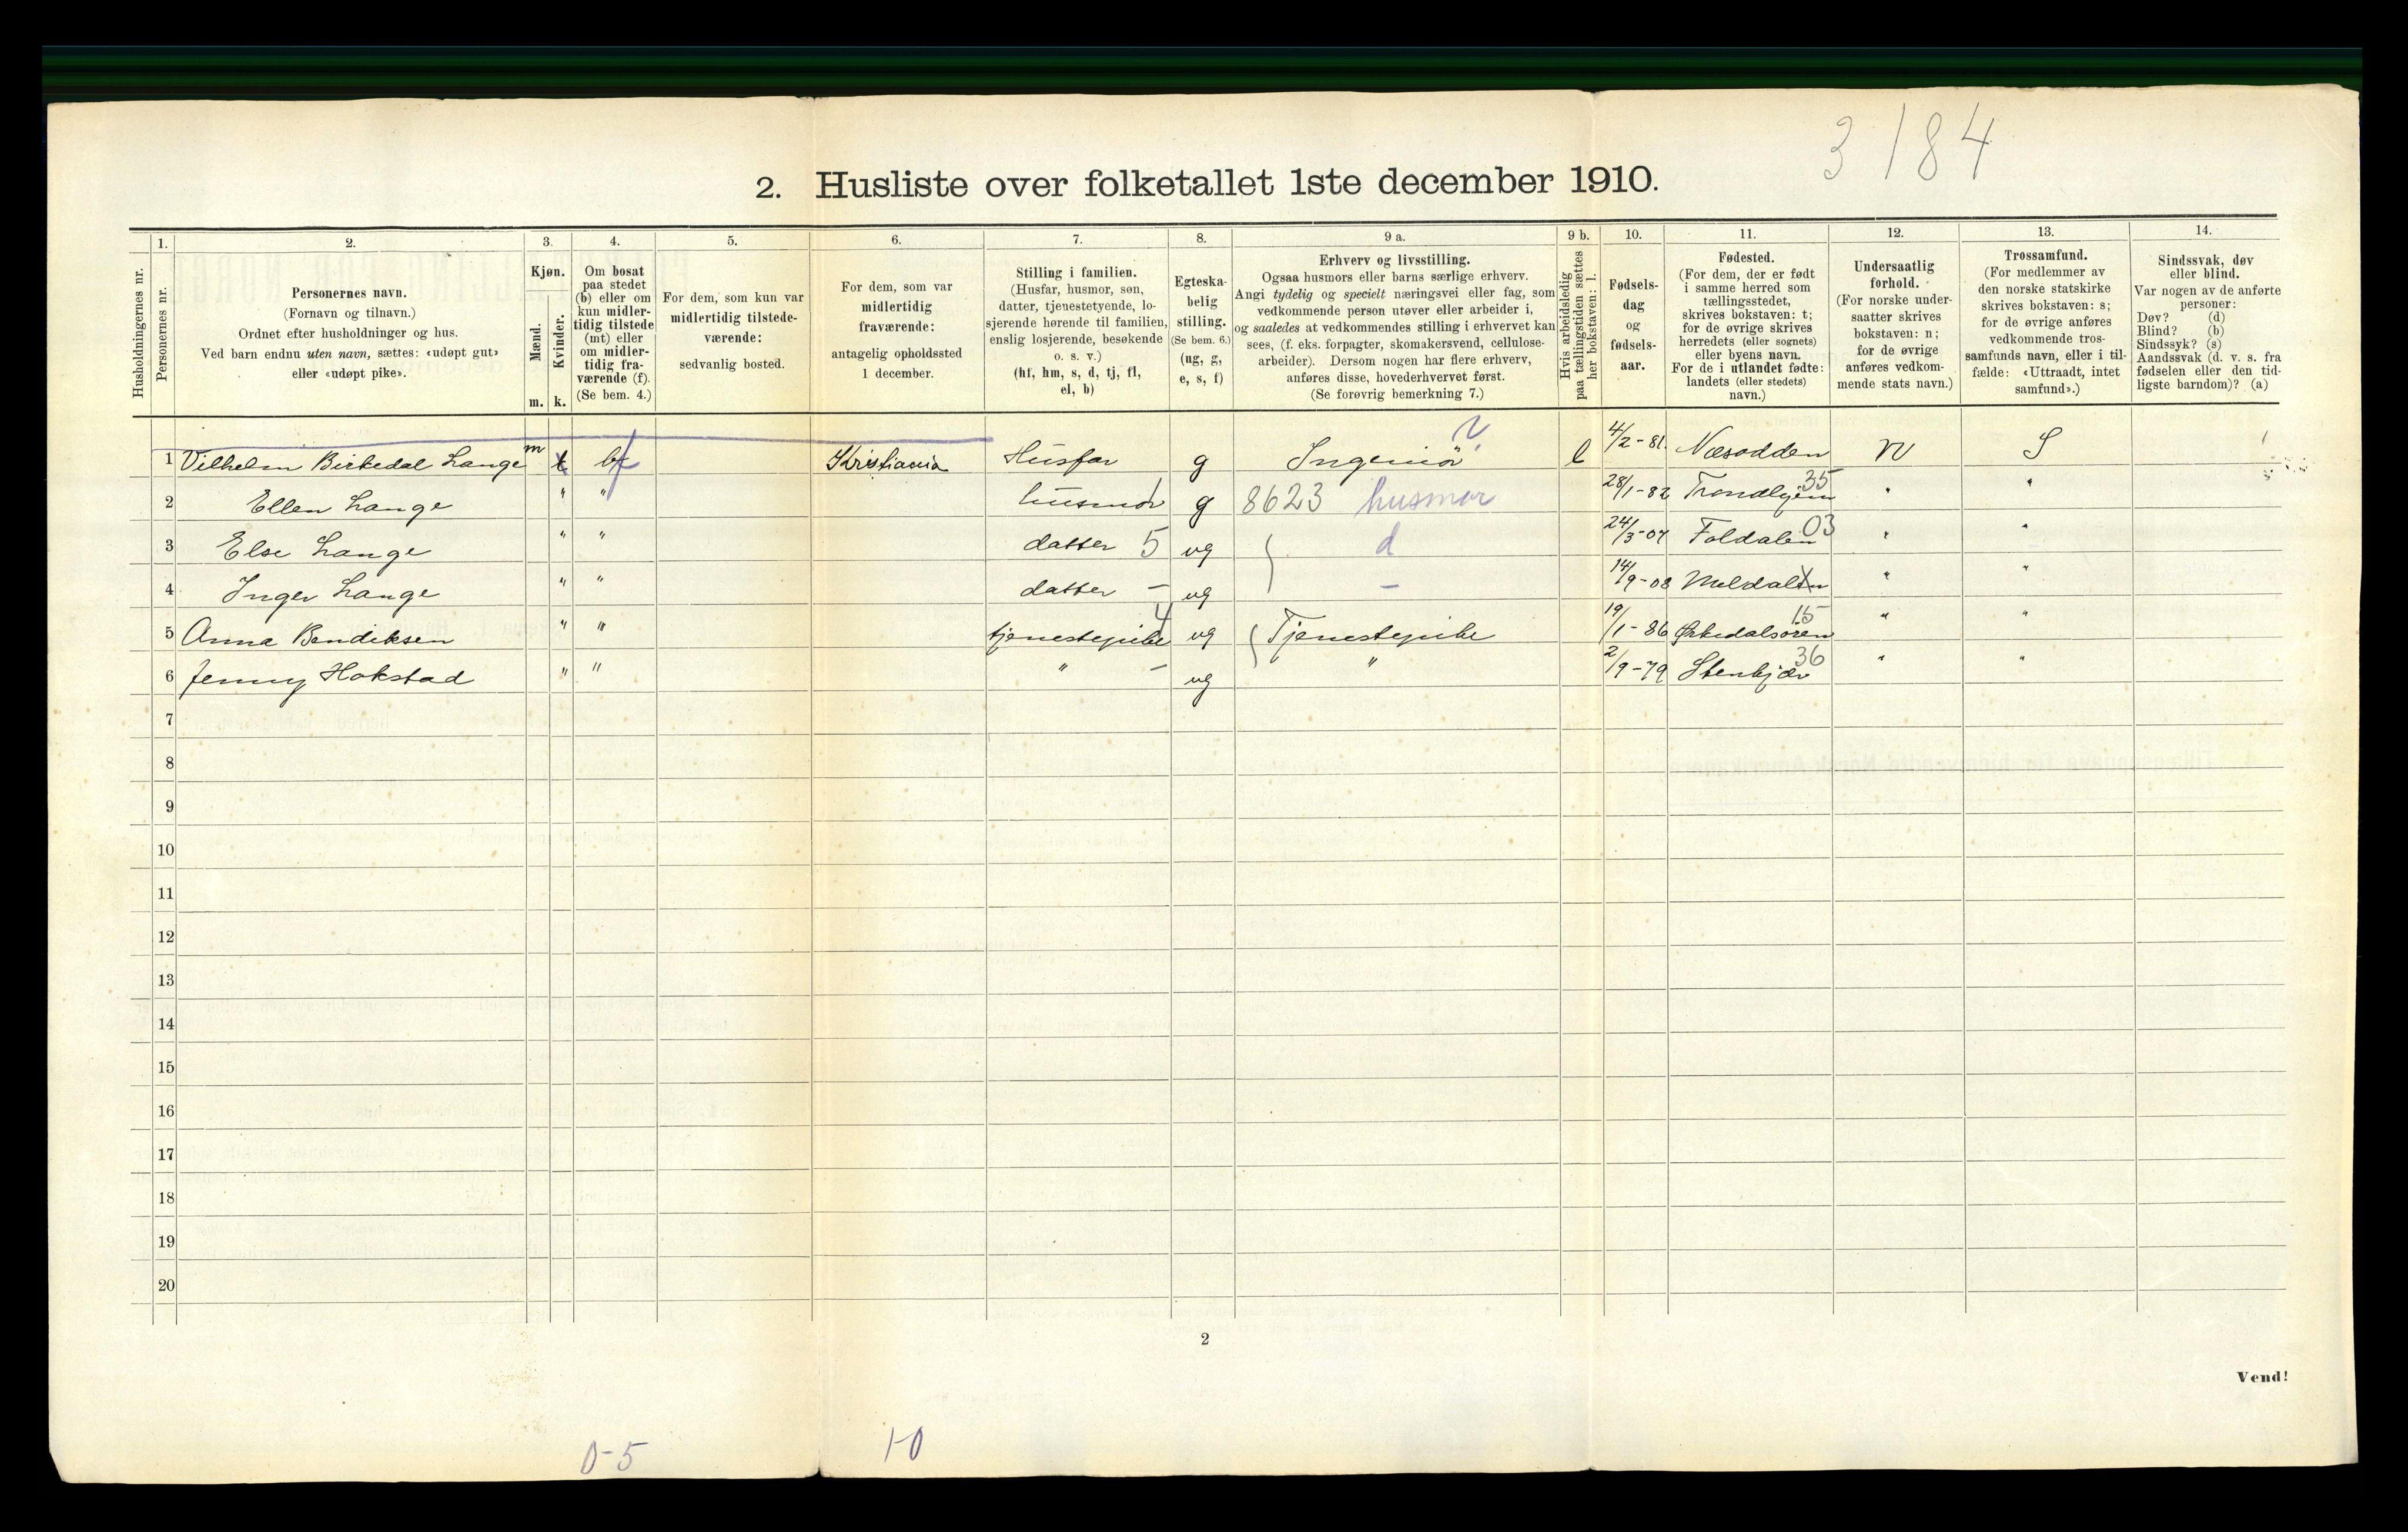 3184
2. Husliste over folketallet 1ste december 1910.
1. 2. 3. 4. 5. 6. 7. 8. 9 a. 9 b. 10. 11. 12. 13. 14.
Husholdningernes nr.
Personernes nr.
Personernes navn.
(Fornavn og tilnavn.)
Ordnet efter husholdninger og hus.
Ved barn endnu uten navn, sættes: «udøpt gut»
eller «udøpt pike».
Kjøn.
Mænd.
Kvinder.
m. k.
Om bosat
paa stedet
(b) eller om
kun midler-
tidig tilstede
(mt) eller
om midler-
tidig fra-
værende (f).
(Se bem. 4.)
For dem, som kun var
midlertidig tilstede-
værende:
sedvanlig bosted.
For dem, som var
midlertidig
fraværende:
antagelig opholdssted
1 december.
Stilling i familien.
(Husfar, husmor, søn,
datter, tjenestetyende, lo-
sjerende hørende til familien,
enslig losjerende, besøkende
o. s. v.)
(hf, hm, s, d, tj, fl,
el, b)
Egteska-
belig
stilling.
(Se bem. 6.)
(ug, g,
e, s, f)
Erhverv og livsstilling.
Ogsaa husmors eller barns særlige erhverv.
Angi tydelig og specielt næringsvei eller fag, som
vedkommende person utøver eller arbeider i,
og saaledes at vedkommendes stilling i erhvervet kan
sees, (f. eks. forpagter, skomakersvend, cellulose-
arbeider). Dersom nogen har flere erhverv,
anføres disse, hovederhvervet først.
(Se forøvrig bemerkning 7.)
Hvis arbeidsledig
paa tællingstiden sættes
her bokstaven: l.
Fødsels-
dag
og
fødsels-
aar.
Fødested.
(For dem, der er født
i samme herred som
tællingsstedet,
skrives bokstaven: t;
for de øvrige skrives
herredets (eller sognets)
eller byens navn.
For de i utlandet fødte:
landets (eller stedets)
navn.)
Undersaatlig
forhold.
(For norske under-
saatter skrives
bokstaven: n;
for de øvrige
anføres vedkom-
mende stats navn.)
Trossamfund.
(For medlemmer av
den norske statskirke
skrives bokstaven: s;
for de øvrige anføres
vedkommende tros-
samfunds navn, eller i til-
fælde: «Uttraadt, intet
samfund».)
Sindssvak, døv
eller blind.
Var nogen av de anførte
personer:
Døv? (d)
Blind? (b)
Sindssyk? (s)
Aandssvak (d. v. s. fra
fødselen eller den tid-
ligste barndom)? (a)
1 Vilhelm Birkedal Lange m k bf Kristiania Husfar g Ingeniør ? l 4/2-81. Næsodden N S
2 Ellen Lange " " husmor 1 g 8623 husmor 28/1-82 Trondhjem 35 " "
3 Else Lange " " datter 5 ug d 24/3-07 Foldalen 03 " "
4 Inger Lange " " datter - ug - 14/9-08 Meldalen " "
5 Anna Bendiksen " " tjenestepike 4 ug Tjenestepike 19/1-86 Ørkedalsøren 15 " "
6 Jenny Hokstad " " " - ug " 2/9-79 Stenkjær 36 " "
7
8
9
10
11
12
13
14
15
16
17
18
19
20
2
Vend!
0-5
1-0